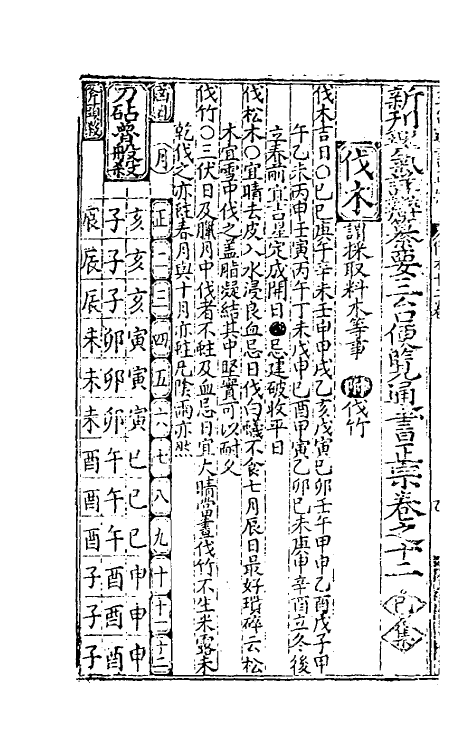 新刊理氣詳辯纂要三台便覽通書正宗卷之十二 集
伐木 謂採取料木等事 附伐竹
伐木吉日○己巳庚午辛未壬申甲戌乙亥戊寅己卯壬午甲申乙酉戊子甲
午乙未丙申壬寅丙午丁未戊申己酉甲寅乙卯己未庚申辛酉立冬後
立春前宜吉星定成開日●忌建破收平日
伐松木○宜晴去皮入水浸良血忌日伐白蟻不食七月辰日最好瑣碎云松
木宜雪中伐之盖脂凝結其中堅實可以耐久
伐竹○三伏日及臘月中伐者不蛀及血忌日宜大晴當晝伐竹不生米露未
乾伐之亦蛀春月與十月亦蛀凡陰雨亦然
凶日 月 正 二 三 四 五 六 七 八 九 十 十一 十二
刀砧 魯般殺 亥 亥 亥 寅 寅 寅 巳 巳 巳 申 申 申
子 子 子 卯 卯 卯 午 午 午 酉 酉 酉
斧頭殺 辰 辰 辰 未 未 未 酉 酉 酉 子 子 子